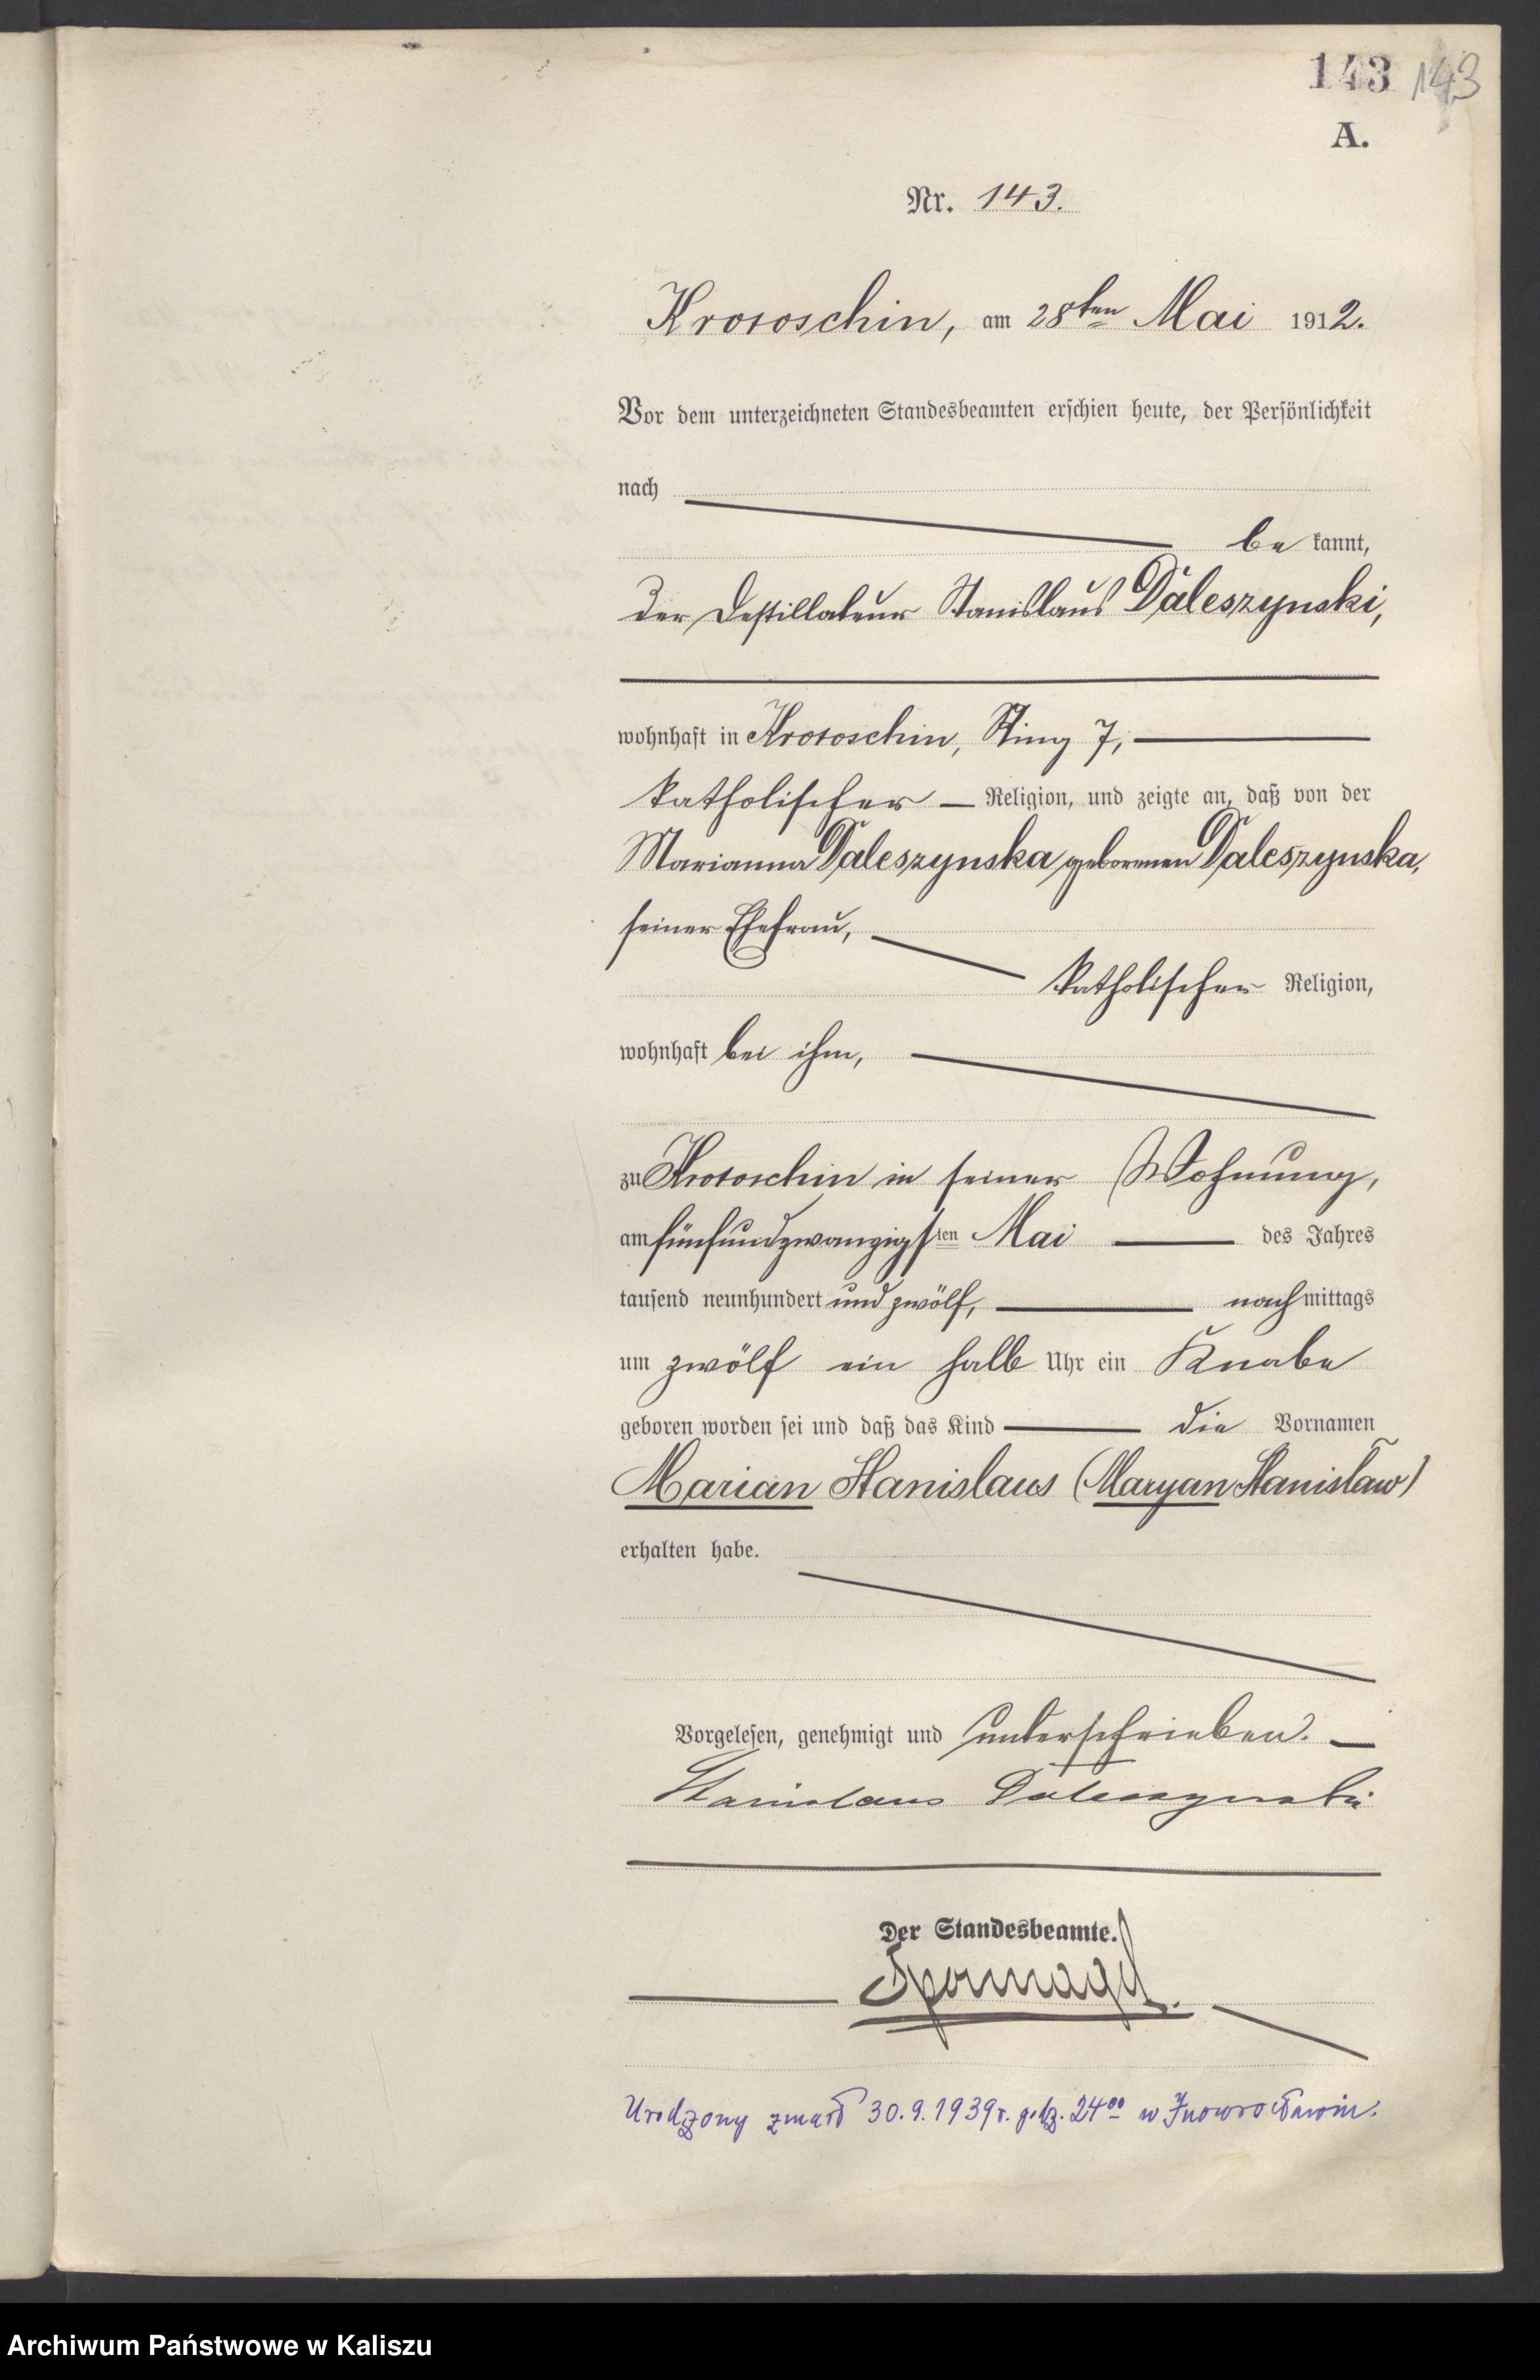 143 143
A.
Nr. 143.
Krotoschin, am 28ten Mai 1912.
Vor dem unterzeichneten Standesbeamten erschien heute, der Persönlichkeit
nach
be kannt,
der Destillateur Stanislaus Daleszynski,
wohnhaft in Krotoschin, Ring 7,
katholischer Religion, und zeigte an, daß von der
Marianna Daleszynska geborenen Daleszynska,
seiner Ehefrau,
katholischer Religion,
wohnhaft bei ihm,
zu Krotoschin in seiner Wohnung,
am fünfundzwanzigsten Mai des Jahres
tausend neunhundert und zwölf, nachmittags
um zwölf ein halb Uhr ein Knabe
geboren worden sei und daß das Kind die Vornamen
Marian Stanislaus (Maryan Stanisław)
erhalten habe.
Vorgelesen, genehmigt und unterschrieben.
Stanislaus Daleszynski
Der Standesbeamte.
Urodzony zmarł 30.9.1939 r. godz. 24⁰⁰ w Inowrocławiu.
Archiwum Państwowe w Kaliszu